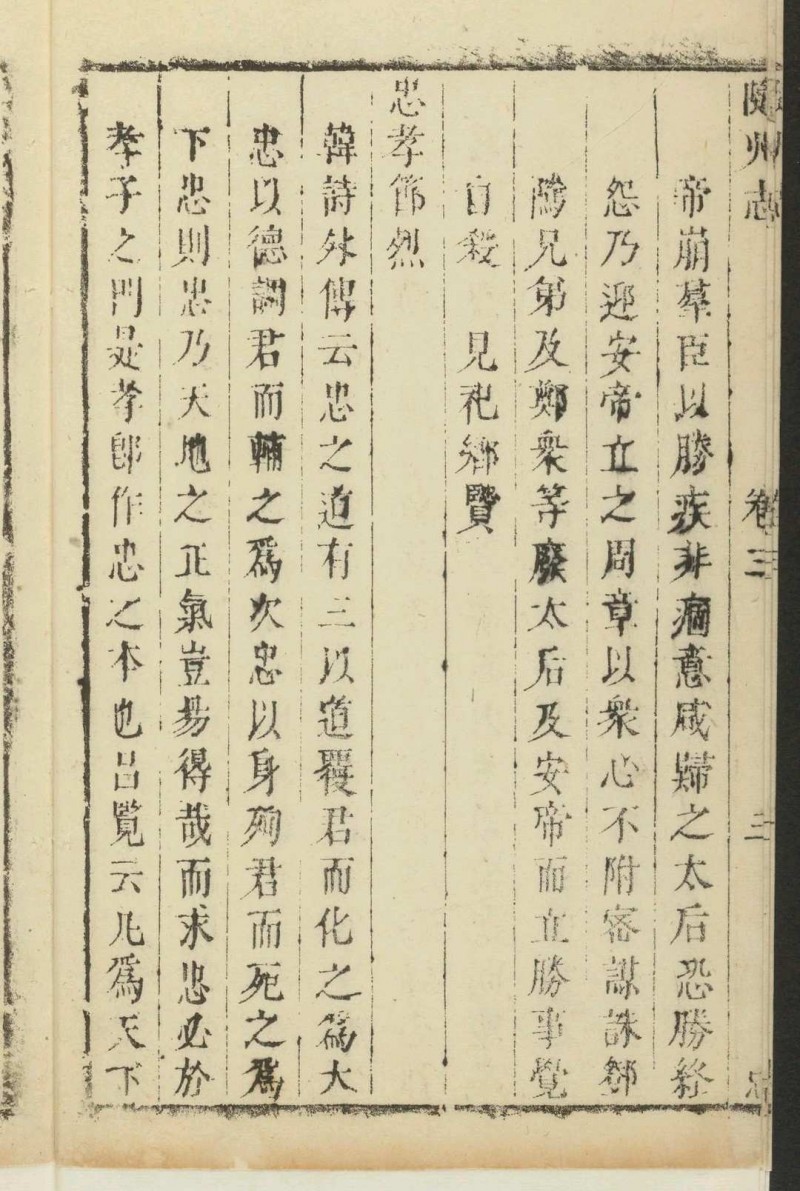 隨州志 卷三 三
帝崩羣臣以勝疾非痼意咸歸之太后恐勝終
怨乃迎安帝立之周章以衆心不附密謀誅鄧
隲兄弟及鄭衆等廢太后及安帝而立勝事覺
自殺 見祀鄉賢
忠孝節烈
韓詩外傳云忠之道有三以道覆君而化之爲大
忠以德調君而輔之爲次忠以身殉君而死之爲
下忠則忠乃天地之正氣豈易得哉而求忠必於
孝子之門是孝卽作忠之本也吕覧云凡爲天下